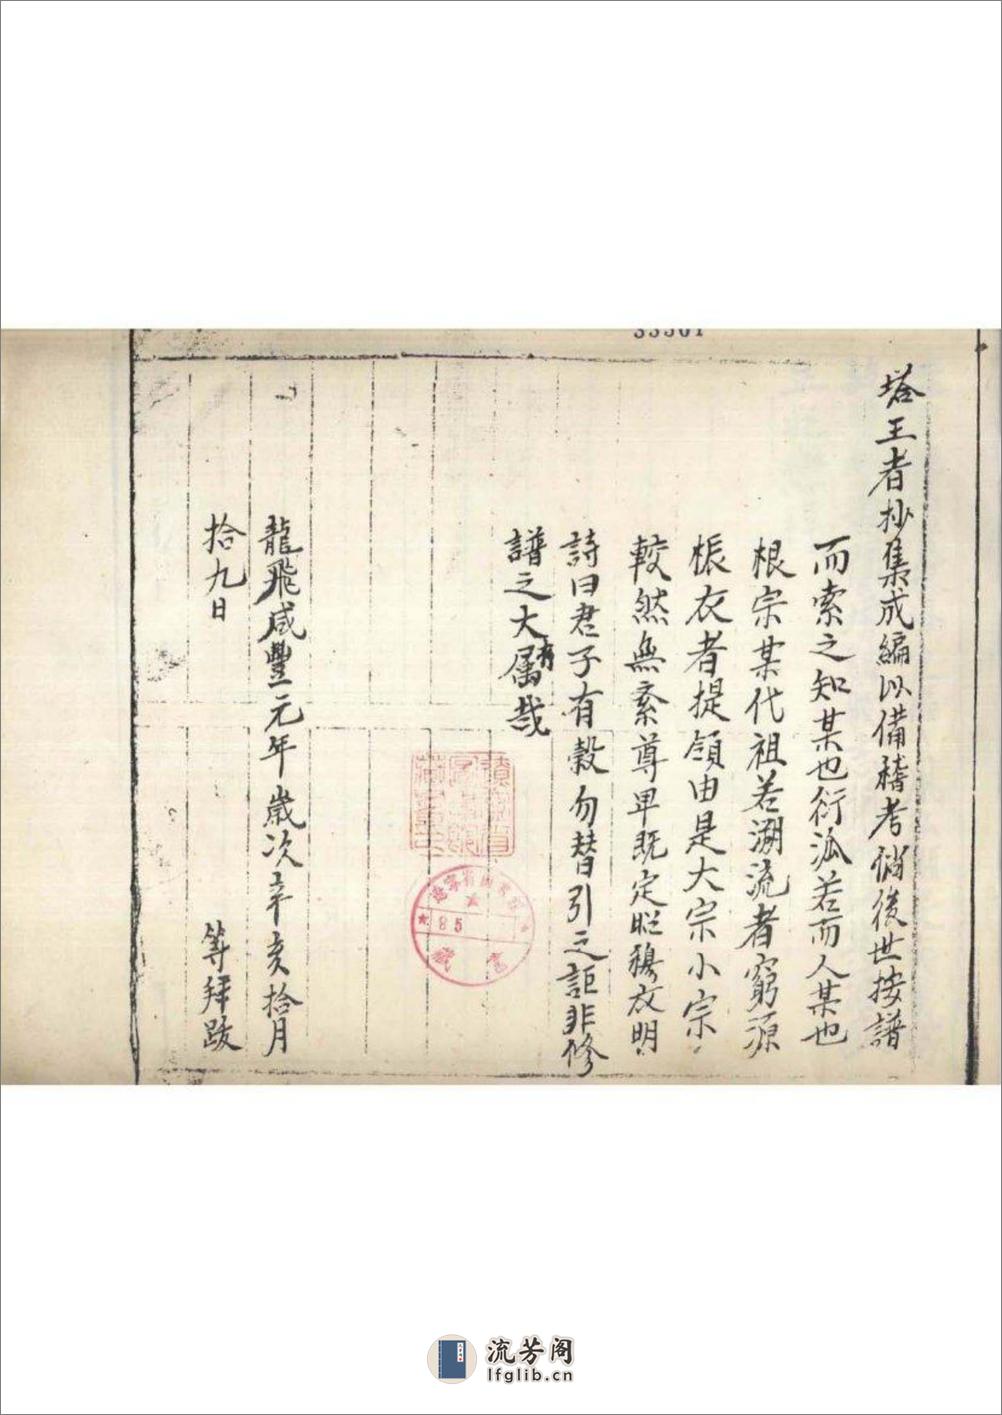 33501
塔王者抄集成編以備稽考俏後世按譜
而索之知某也衍泒若而人某也
根宗某代祖若溯流者窮源
振衣者提領由是大宗小宗
較然無紊尊卑既定昭穆攸明
詩曰君子有穀勿替引之詎非修
譜之大有属哉
龍飛咸豐元年歲次辛亥拾月
拾九日
等拜跋
85
流芳阁
lfglib.cn